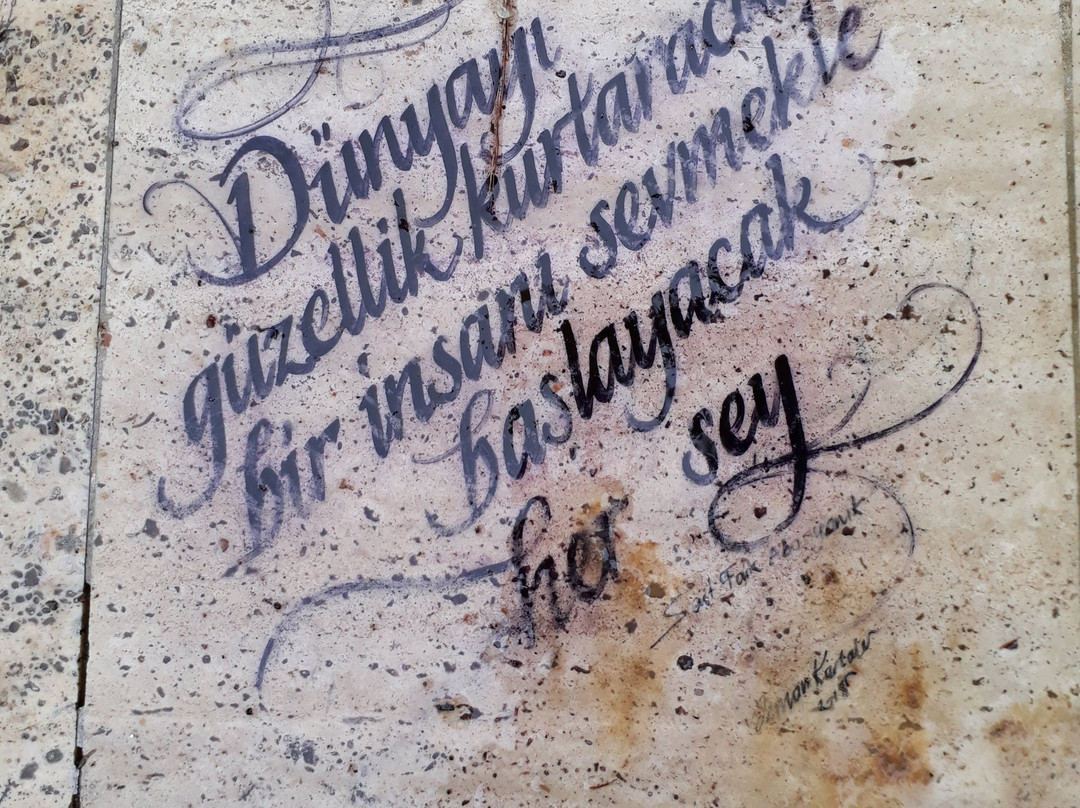 Dünyayı
güzellik kurtaracak
bir insanı sevmekle
başlayacak
her şey
Sait Faik Abasıyanık